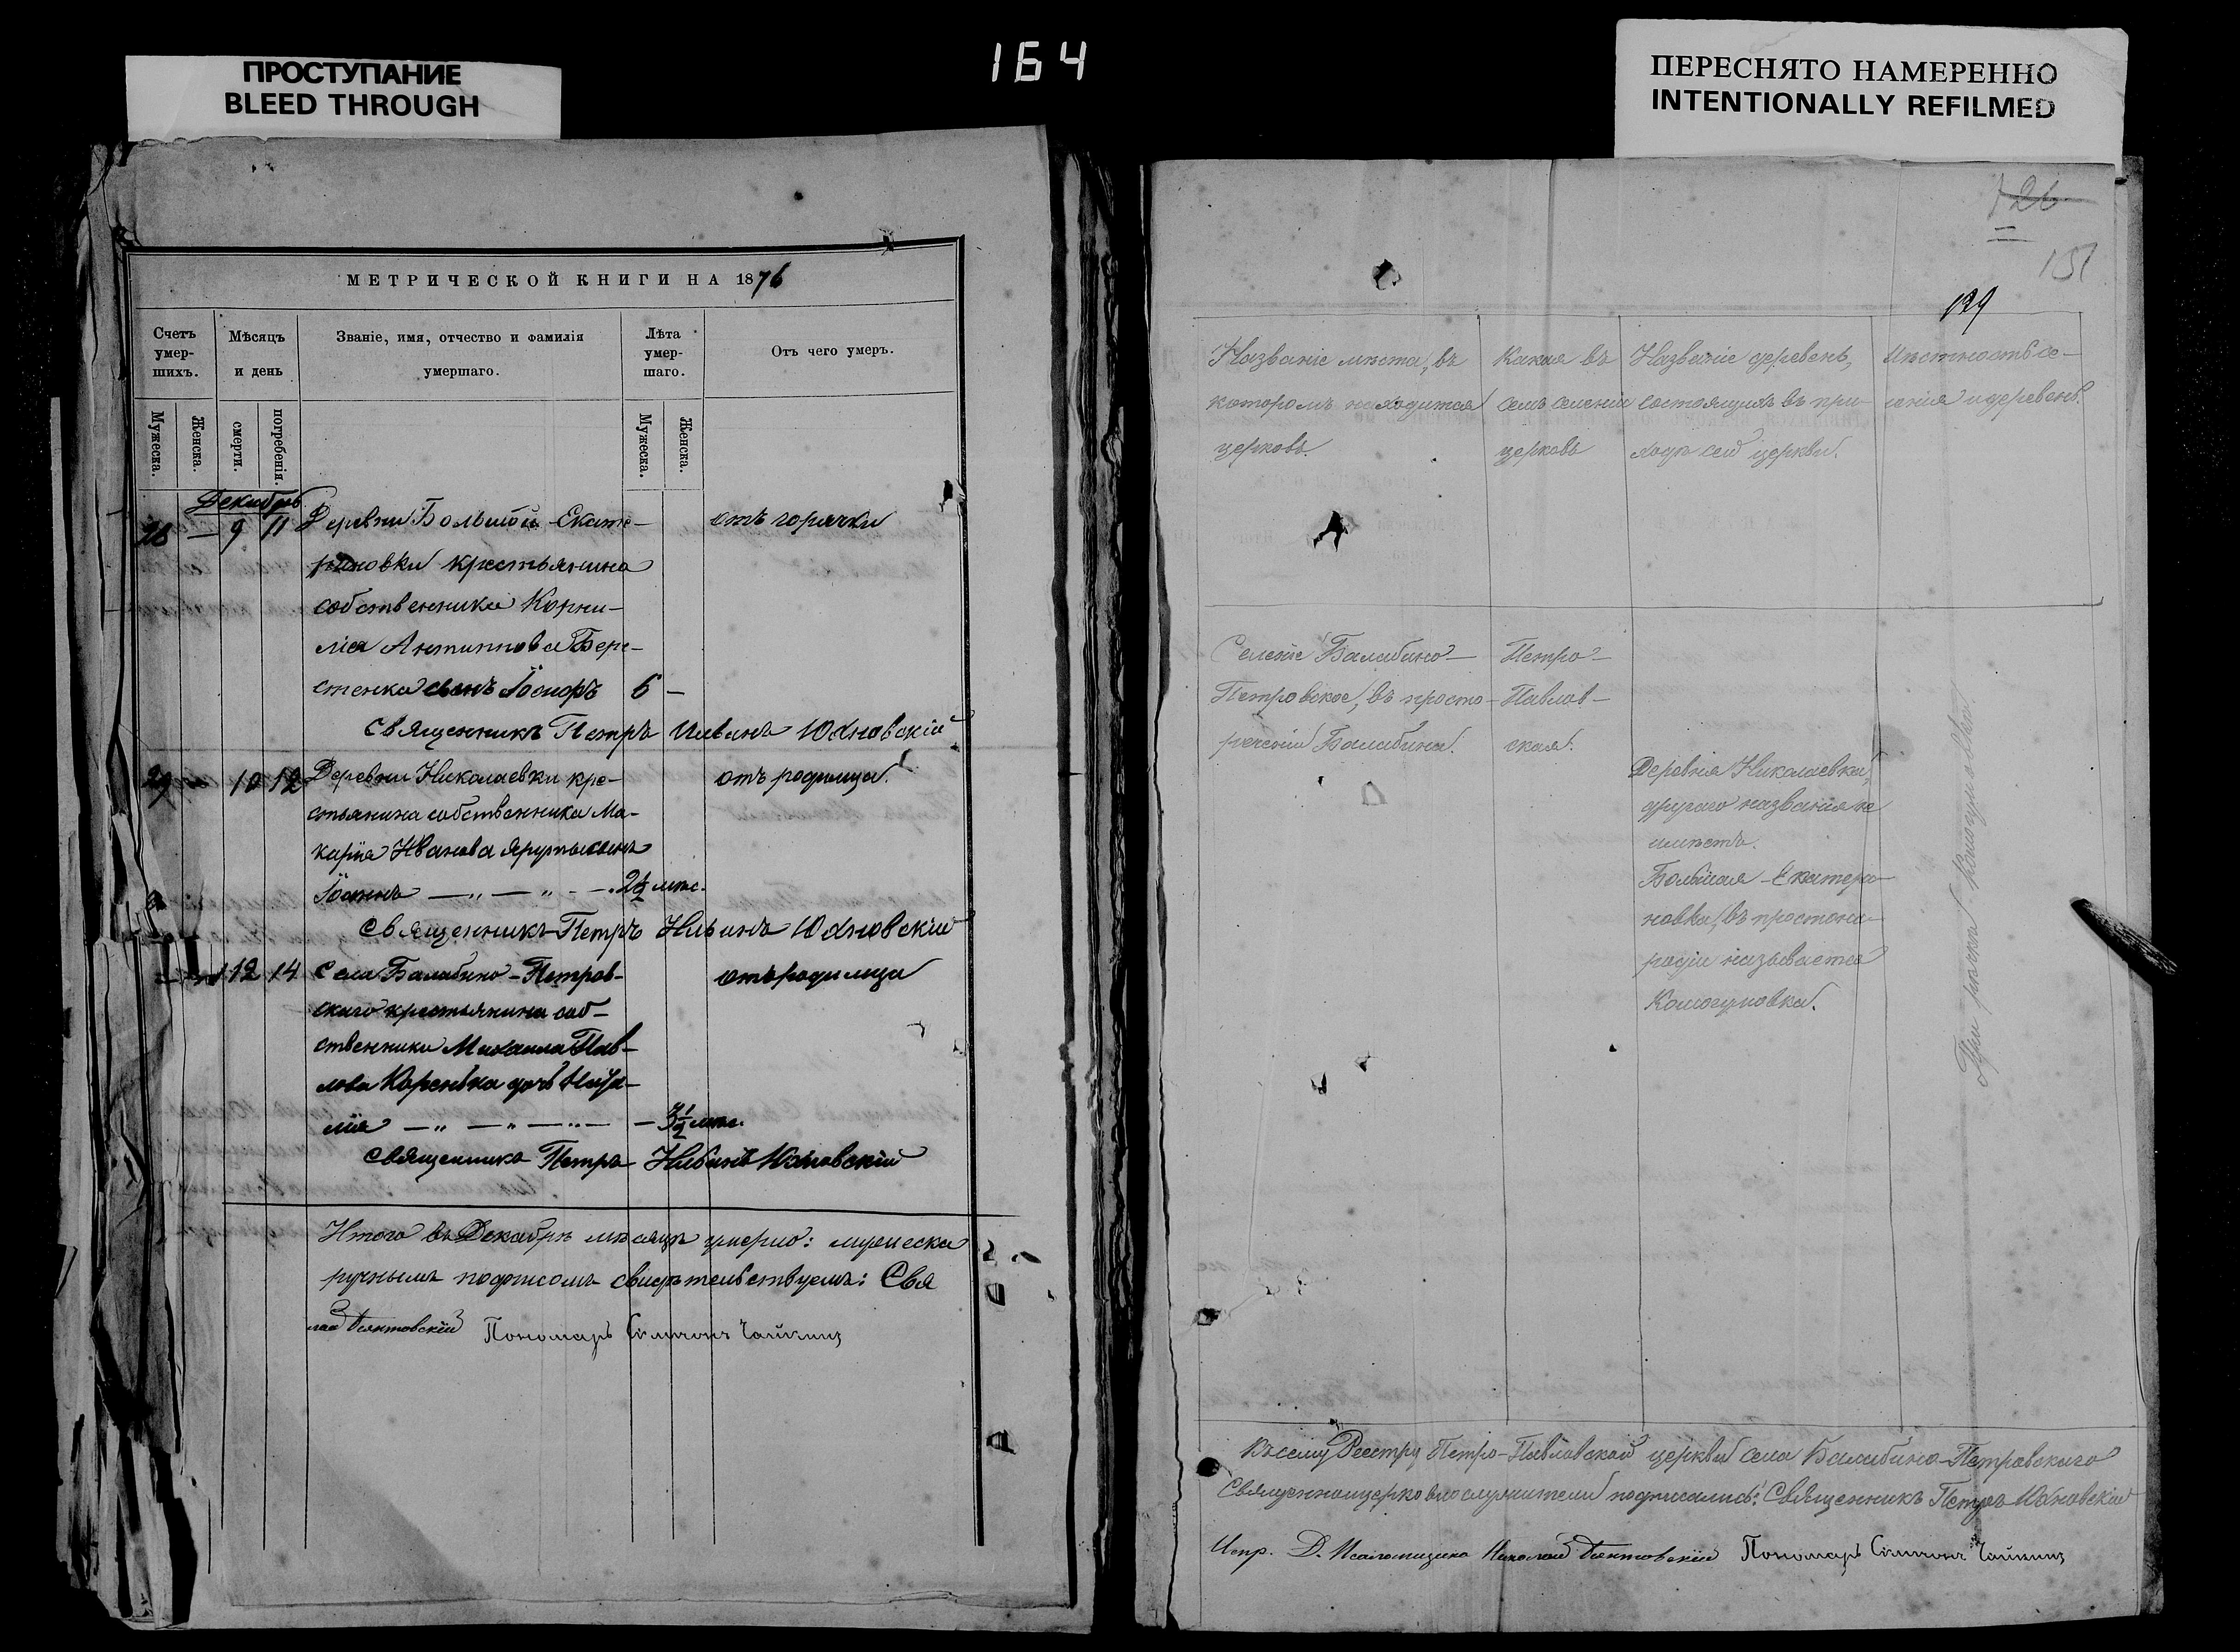 ПРОСТУПАНИЕ
BLEED THROUGH
164
ПЕРЕСНЯТО НАМЕРЕННО
INTENTIONALLY REFILMED
МЕТРИЧЕСКОЙ КНИГИ НА 1876
Счетъ умер-шихъ.
Мѣсяцъ и день
Званіе, имя, отчество и фамилія умершаго.
Лѣта умер-шаго.
Отъ чего умеръ.
Мужеска.
Женска.
смерти.
погребенія.
Мужеска.
Женска.
Декабрь
28 — 9 11 Деревни Большой Екате- отъ горячки
риновки крестьянина
собственника Корни-
лія Антипова Бере-
стенка сынъ Іосифъ 6 —
Священникъ Петръ Ильинъ Юхновскій
29 10 12 Деревни Николаевки кре- отъ родимца.
стьянина собственника Ма-
карія Иванова сынъ
Іоаннъ — „ — „ - —. 2½ мѣс.
Священникъ Петръ Ильинъ Юхновскій
12 14 Села Балабино-Петров- отъ родимца
скаго крестьянина соб-
ственника Михаила Пав-
лова дочь
лія — „ — „ — „ — — 3½ мѣс.
Священникъ Петръ Ильинъ Юхновскій
Итого въ Декабрѣ мѣсяцѣ умерло: мужеска
ручнымъ подписомъ свидѣтельствуемъ: Свя
лай Пономарь Симеонъ Чайкинъ
126
151
129
Названіе мѣста, въ
которомъ находится
церковь.
Какая въ
семъ селеніи
церковь
Названіе деревень,
состоящихъ въ при-
ходѣ сей церкви.
Мѣстность се-
ленія и деревень.
Селеніе Балабино-
Петровское, въ просто-
реченіи Балабина.
Петро-
Павлов-
ская.
Деревня Николаевка,
другаго названія не
имѣетъ.
Большая-Екатери-
новка, въ простона-
родіи называется
При рѣчки
Къ сему Реестру Петро-Павловской церкви села Балабино-Петровскаго
Священноцерковнослужители подписались: Священникъ Петръ Юхновскій
Испр. Д. Псаломщика Николай Пономарь Симеонъ Чайкинъ